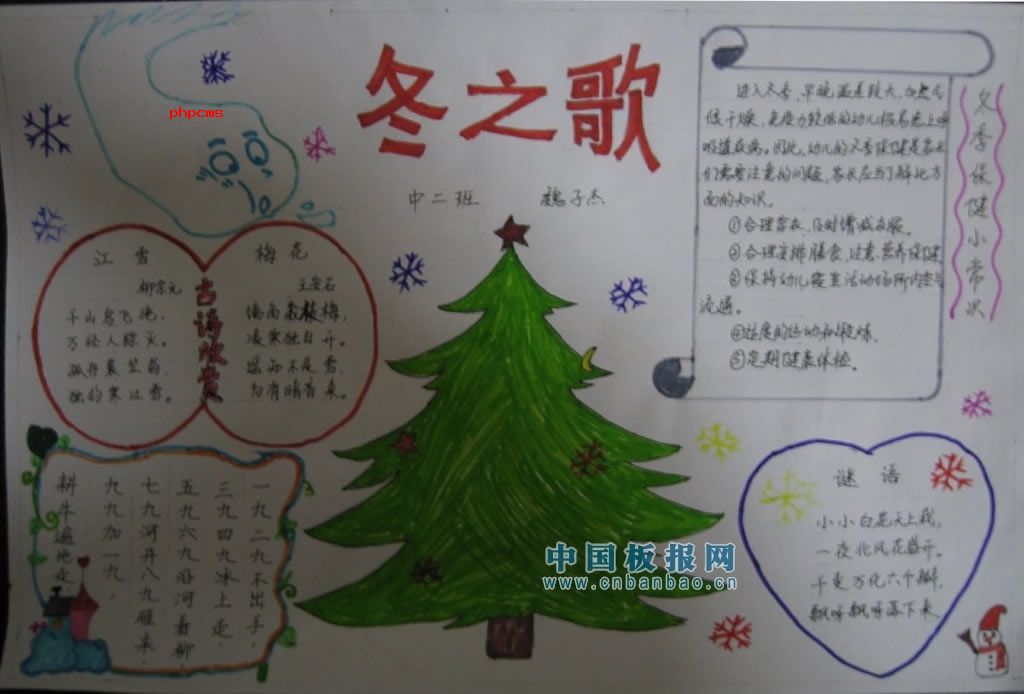 冬之歌
中二班 魏子杰
phpcms
江雪
柳宗元
千山鸟飞绝,
万径人踪灭。
孤舟蓑笠翁,
独钓寒江雪。
古诗欣赏
梅花
王安石
墙角数枝梅,
凌寒独自开。
遥知不是雪,
为有暗香来。
进入冬季,早晚温差较大,加之气
候干燥,免疫力较低的幼儿极易患上呼
吸道疾病。因此,幼儿的冬季保健是家长
们需要注意的问题,家长应当了解此方
面的知识。
①合理穿衣,及时增减衣服。
②合理安排膳食,注意营养保健
③保持幼儿寝室活动场所内空气
流通。
④适度的运动和锻炼。
⑤定期健康体检。
冬季保健小常识
一九二九不出手,
三九四九冰上走,
五九六九沿河看柳
七九河开八九雁来,
九九加一九,
耕牛遍地走
谜语
小小白花天上栽,
一夜北风花盛开。
千变万化六个瓣,
飘呀飘呀落下来
中国板报网
www.cnbanbao.cn